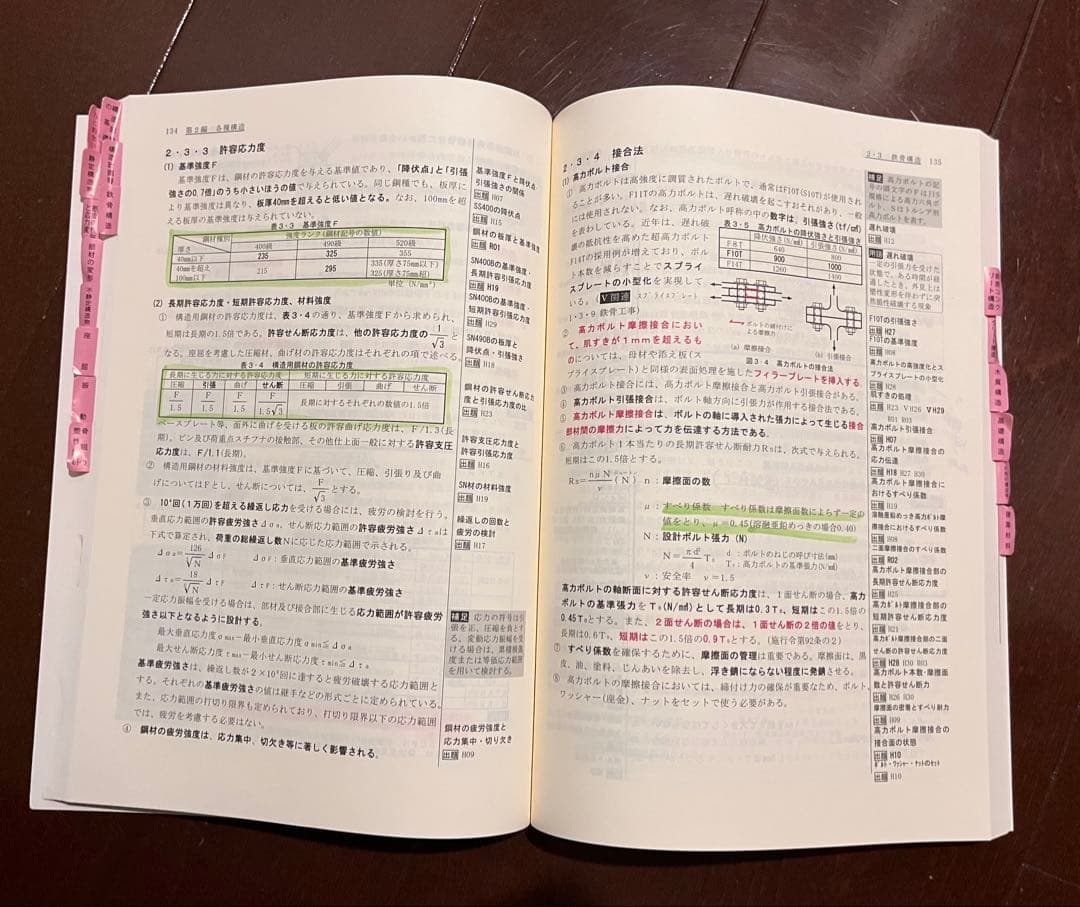 134 第2編 各種構造
2・3・3 許容応力度
(1) 基準強度F
基準強度Fは、鋼材の許容応力度を与える基準値であり、「降伏点」と「引張
強さの0.7倍」のうち小さいほうの値で与えられている。同じ鋼種でも、板厚に
より基準強度は異なり、板厚40mmを超えると低い値となる。なお、100mmを超
える板厚の基準強度は与えられていない。
表3・3 基準強度F
鋼材種別 強度ランク(鋼材記号の数値)
厚さ 400級 490級 520級
40mm以下 235 325 355
40mmを超え 215 295 335(厚さ75mm以下)
100mm以下 325(厚さ75mm超)
単位(N/mm²)
(2) 長期許容応力度・短期許容応力度、材料強度
① 構造用鋼材の許容応力度は、表3・4の通り、基準強度Fから求められ、
短期は長期の1.5倍である。許容せん断応力度は、他の許容応力度の1/√3と
なる。座屈を考慮した圧縮材、曲げ材の許容応力度はそれぞれの項で述べる。
表3・4 構造用鋼材の許容応力度
長期に生じる力に対する許容応力度 短期に生じる力に対する許容応力度
圧縮 引張 曲げ せん断 圧縮 引張 曲げ せん断
F/1.5 F/1.5 F/1.5 F/1.5√3 長期に対するそれぞれの数値の1.5倍
ベースプレート等、面外に曲げを受ける板の許容曲げ応力度は、F/1.3(長
期)。ピン及び荷重点スチフナの接触部、その他仕上面一般に対する許容支圧
応力度は、F/1.1(長期)。
② 構造用鋼材の材料強度は、基準強度Fに基づいて、圧縮、引張り及び曲
げについてはFとし、せん断については、F/√3とする。
③ 10⁴回(1万回)を超える繰返し応力を受ける場合には、疲労の検討を行う。
垂直応力度の許容疲労強さΔσa、せん断応力度の許容疲労強さΔτaは
下式で算定され、荷重の総繰返し数Nに応じた応力範囲で示される。
Δσa=126/³√N ΔσF ΔσF:垂直応力範囲の基準疲労強さ
Δτa=18/⁵√N ΔτF ΔτF:せん断応力範囲の基準疲労強さ
一定応力振幅を受ける場合は、部材及び接合部に生じる応力範囲が許容疲労
強さ以下となるように設計する。
最大垂直応力度σmax−最小垂直応力度σmin≦Δσa
最大せん断応力度τmax−最小せん断応力度τmin≦Δτa
基準疲労強さは、繰返し数が2×10⁶回に達すると疲労破壊する応力範囲と
する。それぞれの基準疲労強さの値は継手などの形式ごとに定められている。
また、応力範囲の打切り限界も定められており、打切り限界以下の応力範囲
では、疲労を考慮する必要はない。
④ 鋼材の疲労強度は、応力集中、切欠き等に著しく影響される。
基準強度Fと降伏点
引張強さの関係
出題 H07
SS400の降伏点
出題 H15
鋼材の板厚と基準強度
出題 R01
SN400Bの基準強度・
長期許容引張応力度
出題 H19
SN400Bの基準強度・
短期許容引張応力度
出題 H29
SN490Bの板厚と
降伏点・引張強度
出題 H18
鋼材の許容せん断応力
度と引張応力度の比
出題 H23
許容支圧応力度と
許容引張応力度
出題 H16
SN材の材料強度
出題 H19
繰返しの回数と
疲労の検討
出題 H17
補足 応力の符号は引
張を正、圧縮を負とす
る。変動応力振幅を受
ける場合は、累積損傷
度または等価応力範囲
を用いて検討する。
鋼材の疲労強度と
応力集中・切り欠き
出題 H09
2・3 鉄骨構造 135
2・3・4 接合法
(1) 高力ボルト接合
① 高力ボルトは高強度に調質されたボルトで、通常はF10T(S10T)が使用され
ることが多い。F11Tの高力ボルトは、遅れ破壊を起こすおそれがあり、一般
には使用されない。なお、高力ボルト呼称の中の数字は、引張強さ(tf/㎠)
を表わしている。近年は、遅れ破
壊の抵抗性を高めた超高力ボルト
F14Tの採用例が増えており、ボル
ト本数を減らすことでスプライ
スプレートの小型化を実現して
いる。(V関連 スプライスプレート
1・3・9 鉄骨工事)
表3・5 高力ボルトの降伏強さと引張強さ
降伏強さ(N/㎟) 引張強さ(N/㎟)
F8T 640 800
F10T 900 1000
F14T 1260 1400
ボルトの締付けに
よる摩擦力
(a) 摩擦接合 (b) 引張接合
図3・4 高力ボルトの接合法
② 高力ボルト摩擦接合におい
て、肌すきが1mmを超えるも
のについては、母材や添え板(ス
プライスプレート)と同様の表面処理を施したフィラープレートを挿入する。
③ 高力ボルト接合には、高力ボルト摩擦接合と高力ボルト引張接合がある。
④ 高力ボルト引張接合は、ボルト軸方向に引張力が作用する接合法である。
⑤ 高力ボルト摩擦接合は、ボルトの軸に導入された張力によって生じる接合
部材間の摩擦力によって力を伝達する方法である。
⑥ 高力ボルト1本当たりの長期許容せん断耐力Rsは、次式で与えられる。
短期はこの1.5倍とする。
Rs=nμN/ν(N) n:摩擦面の数
μ:すべり係数 すべり係数は摩擦面数によらず一定の
値をとり、μ=0.45(溶融亜鉛めっきの場合0.40)
N:設計ボルト張力(N)
N=πd²/4 T₀ d:ボルトのねじの呼び寸法(㎜)
T₀:高力ボルトの基準張力(N/㎟)
ν:安全率 ν=1.5
高力ボルトの軸断面に対する許容せん断応力度は、1面せん断の場合、高力
ボルトの基準張力をT₀(N/㎟)として長期は0.3T₀、短期はこの1.5倍の
0.45T₀とする。また、2面せん断の場合は、1面せん断の2倍の値をとり、
長期は0.6T₀、短期はこの1.5倍の0.9T₀とする。(施行令第92条の2)
⑦ すべり係数を確保するために、摩擦面の管理は重要である。摩擦面は、黒
皮、油、塗料、じんあいを除去し、浮き錆にならない程度に発錆させる。
⑧ 高力ボルトの摩擦接合においては、締付け力の確保が重要なため、ボルト、
ワッシャー(座金)、ナットをセットで使う必要がある。
補足 高力ボルトの記
号の頭文字のFはJIS
規格による高力六角ボ
ルト、Sはトルシア形
高力ボルトを表す。
遅れ破壊
出題 H12
用語 遅れ破壊
一定の引張力を受けた
状態で、ある時間が経
過したとき、外見上は
塑性変形を伴わずに突
然脆性破壊する現象
F10Tの引張強さ
出題 H27
F10Tの引張強さ
出題 H08
高力ボルトの高強度化と
スプライスプレートの小型化
出題 H28
肌すきの処理
出題 H23 VH26 VH29
R01 R03
高力ボルト引張接合
出題 H07
高力ボルト摩擦接合の
応力伝達
出題 H18 H27 H30
高力ボルト摩擦接合に
おけるすべり係数
出題 H19
溶融亜鉛めっき高力ボルト摩
擦接合におけるすべり係数
出題 H08
二面摩擦接合のすべり係数
出題 R02
高力ボルト摩擦接合部の
長期許容せん断応力度
出題 H25
高力ボルト摩擦接合部の
短期許容せん断応力度
出題 H21
高力ボルト摩擦接合部の二面
せん断の許容せん断応力度
出題 H28 H30 R03
高力ボルト本数・摩擦面
数と許容せん断力
出題 H26 H30
摩擦面の密着とすべり耐力
出題 H09
高力ボルト摩擦接合の
接合面の状態
出題 H10
ボルト・ワッシャー・ナットのセット
出題 H10
静定構造物
部材の変形
不静定構造物
座屈
振動
鉄骨構造
木質構造
基礎構造
建築材料